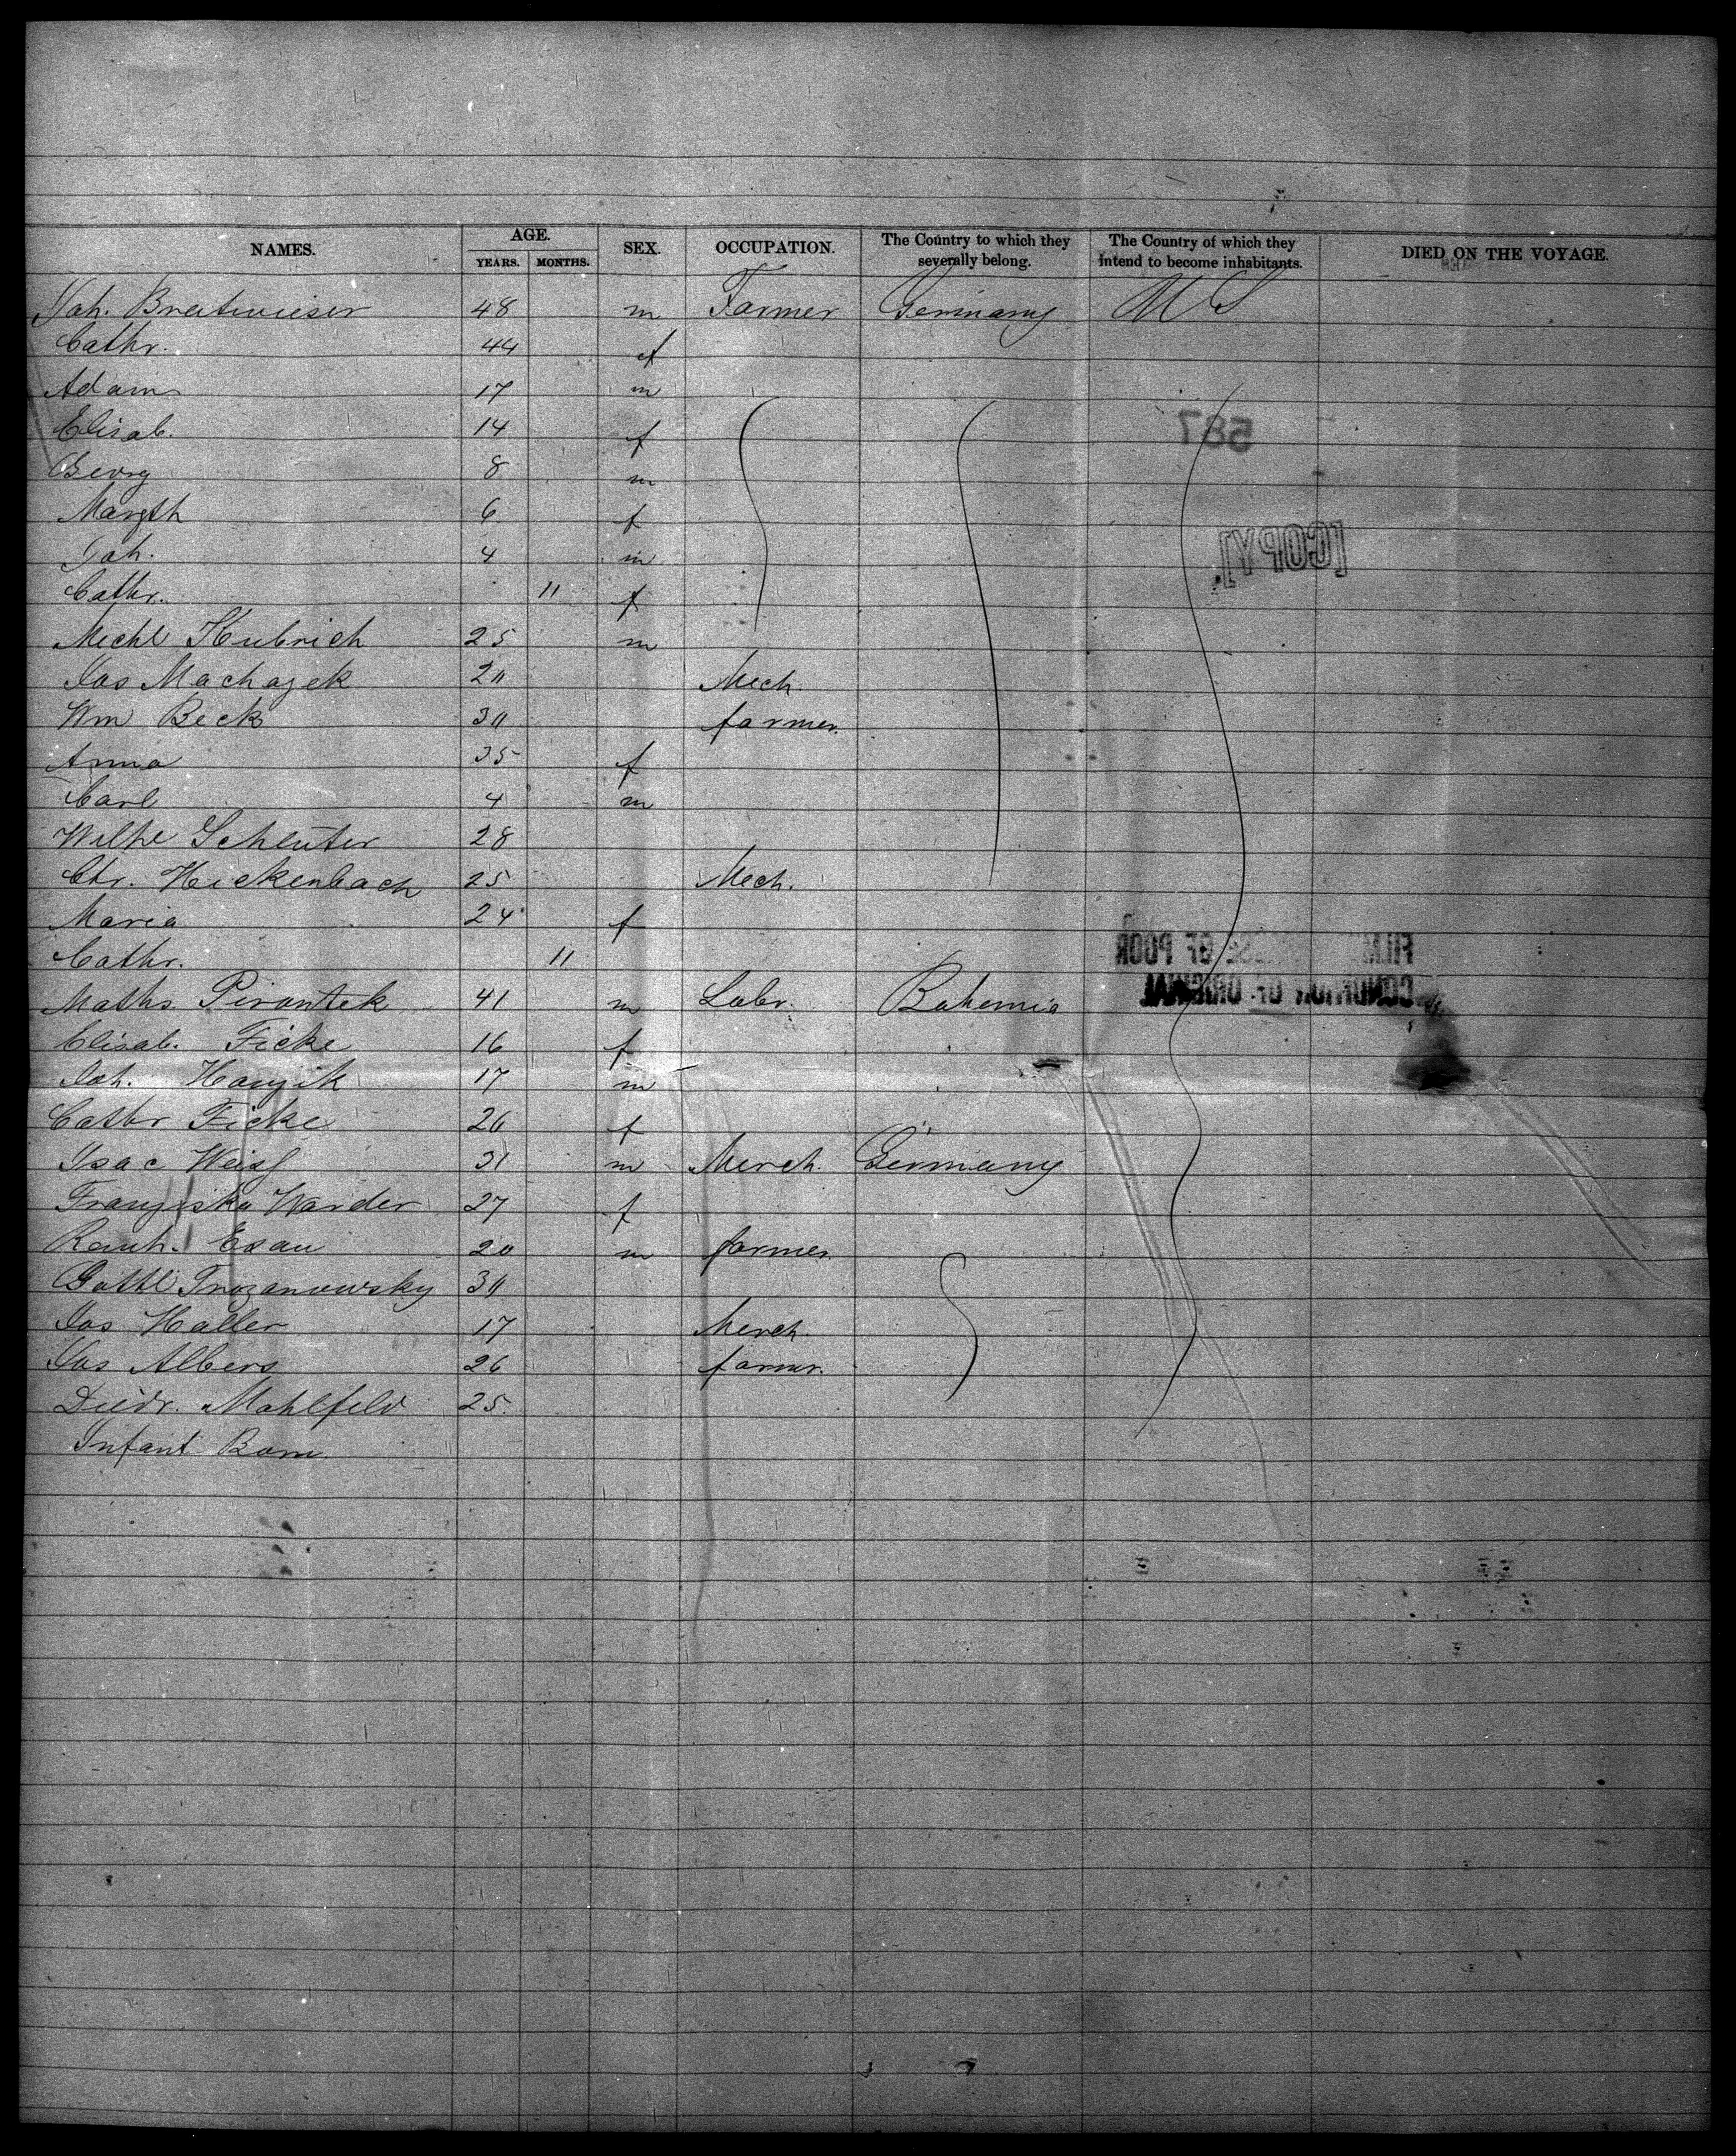 NAMES. AGE. SEX. OCCUPATION. The Country to which they severally belong. The Country of which they intend to become inhabitants. DIED ON THE VOYAGE.
YEARS. MONTHS.
Joh. Breitwieser 48 m Farmer Germany U S
Cathr. 44 f
Adam 17 m
Elisab. 14 f
587
Georg 8 m
Margth 6 f
Joh. 4 m
[COPY]
Cathr. 11 f
Michl Hubrich 25 m
Jos Machazek 20 Mech.
Wm Beck 30 farmer.
Anna 35 f
Carl 4 m
Wilhe Schlüter 28
Chr. Hickenbach 25 Mech.
Maria 24 f
Cathr. 11
OF POOR
CONDITION OF ORIGINAL
Maths. 41 m Labr. Bohemia
Elisab. Ficke 16 f
Joh. Hanzik 17 m
Cathr Ficke 26 f
Isac Weiss 31 m Merch. Germany
Franziska Warder 27 f
Esau 20 m farmer.
Gottl 30
Jos Haller 17 Merch.
Jos Albers 26 farmr.
Diedr. Mahlfeld 25
Infant Born